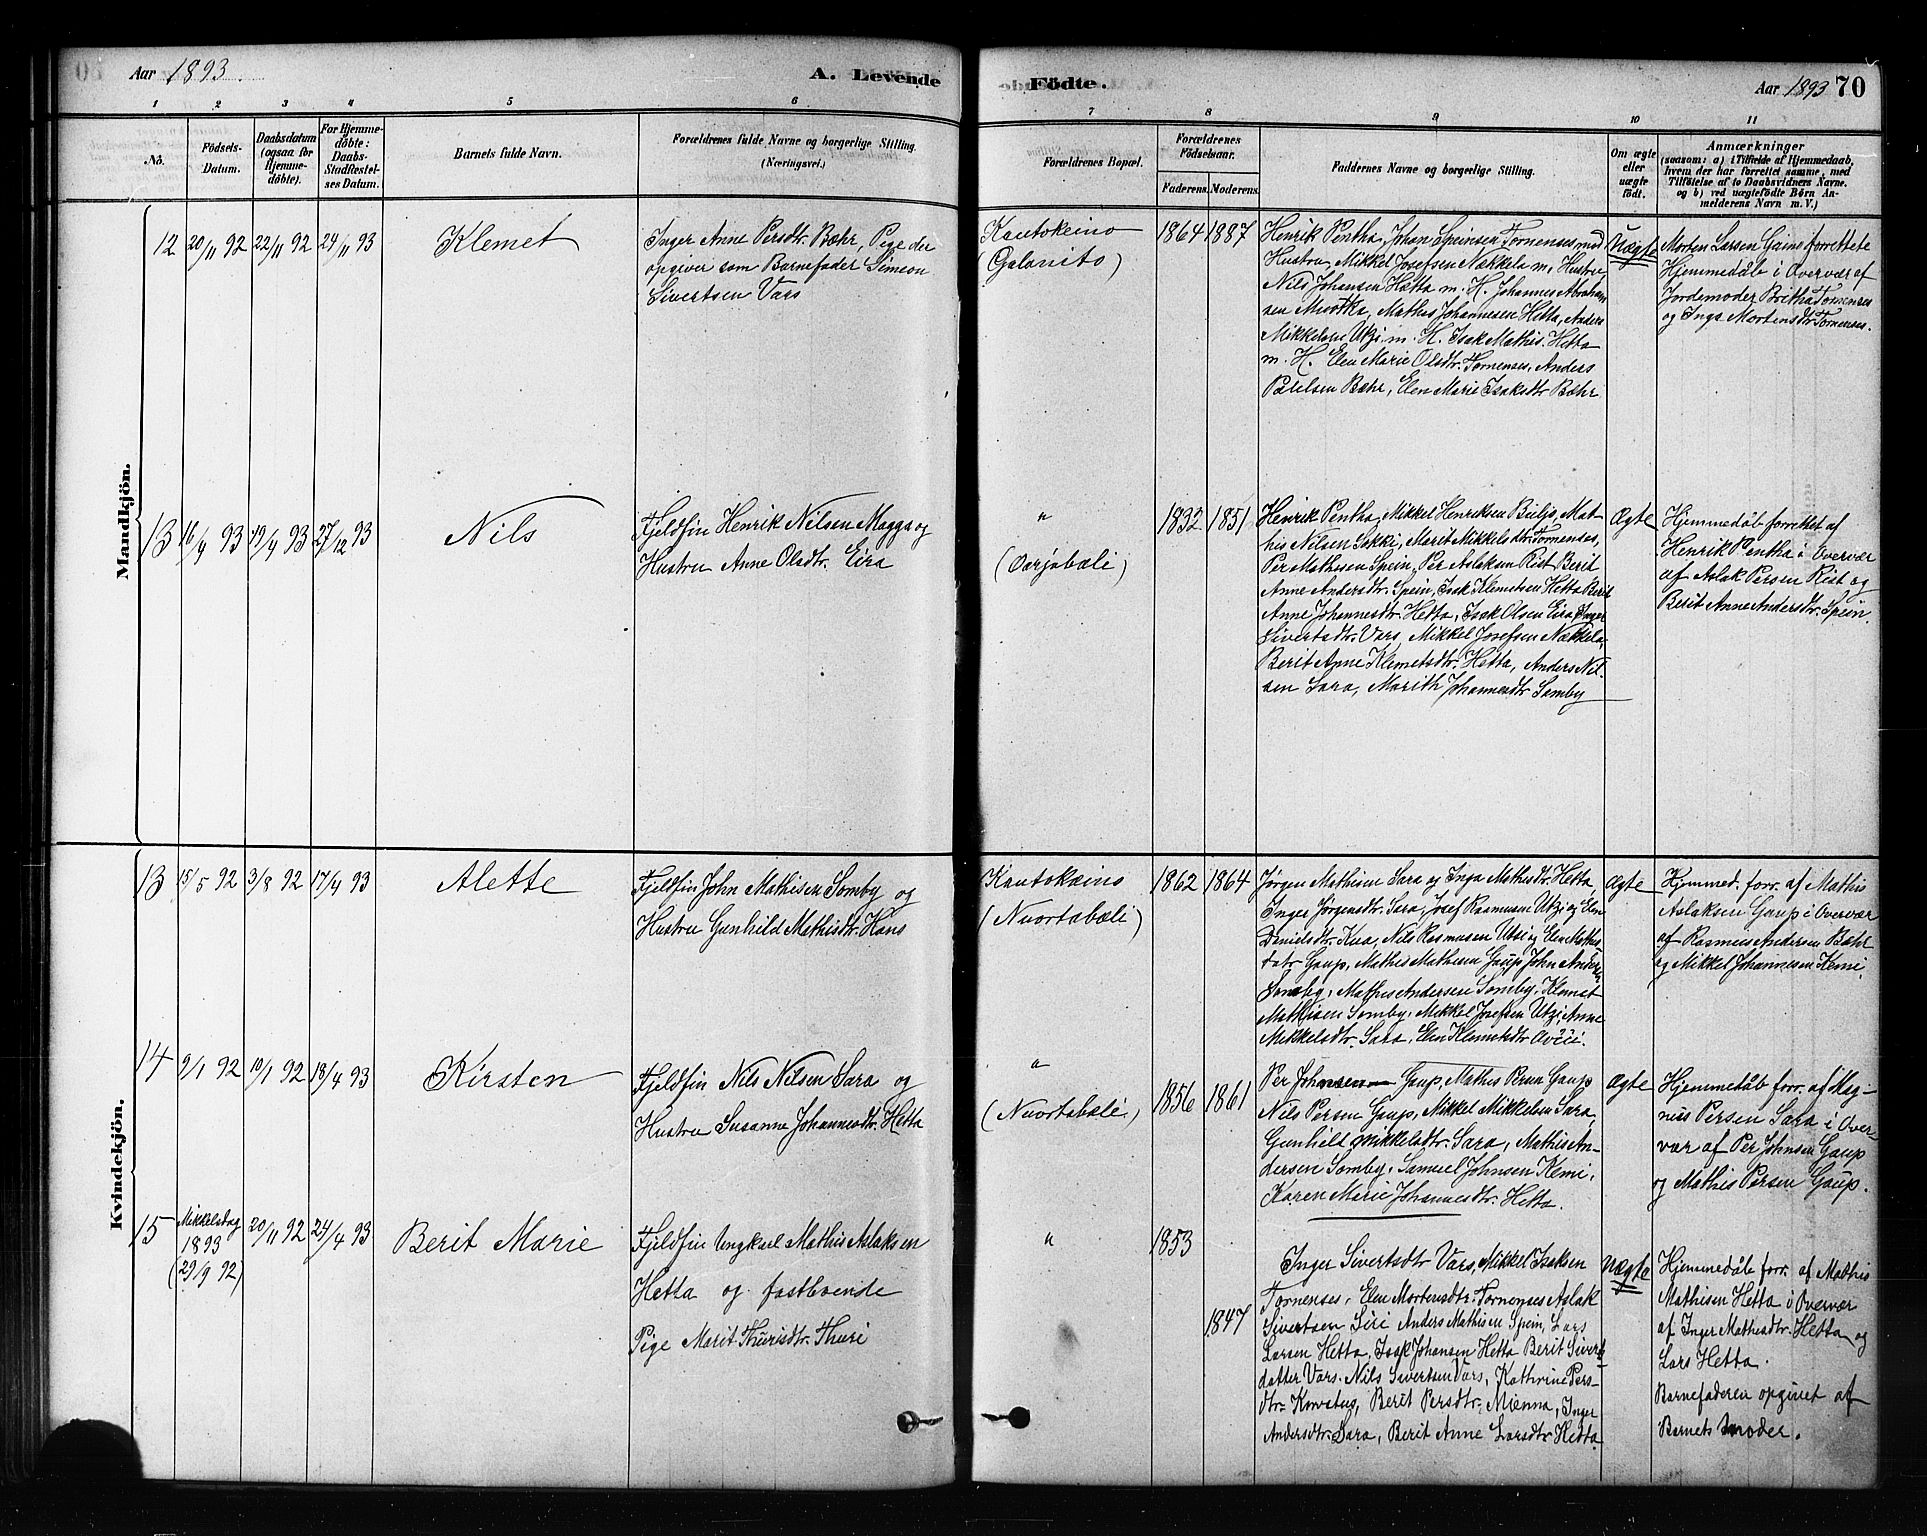 Aar 1893.
A. Levende
Födte.
Aar 1893
70
1 2 3 4 5 6 7 8 9 10 11
No.
Födsels-
Datum.
Daabsdatum
(ogsaa for
Hjemme-
döbte).
For Hjemme-
döbte:
Daabs-
Stadfæstel-
ses Datum.
Barnets fulde Navn.
Forældrenes fulde Navne og borgerlige Stilling.
(Næringsvei.)
Forældrenes Bopæl.
Forældrenes
Födselsaar.
Faderens. Moderens.
Faddernes Navne og borgerlige Stilling.
Om ægte
eller
uægte
födt.
Anmærkninger
(saasom: a) i Tilfælde af Hjemmedaab,
hvem der har forrettet samme, med
Tilföielse af to Daabsvidners Navne.
og b) ved uægtefödte Börn An-
melderens Navn m. V.)
Mandkjön.
12
20/11 92
22/11 92
24/11 93
Klemet
Inger Anne Persdtr. Bæhr, Pige der
opgiver som Barnefader Simeon
Sivertsen Vars
Kautokeino
(Galanito)
1864
1887
Henrik Pentha, Johan Speinsen Tornenses med
Hustru, Mikkel Josefsen Nækkela m. Hustru
Nils Johansen Hætta m. H. Johannes Abraham
sen Muotka, Mathis Johannesen Hetta, Anders
Mikkelsen Utzi m. H. Isak Mathis. Hetta
m. H. Elen Marie Olsdtr. Tornenses, Anders
Poulsen Bæhr, Elen Marie Isaksdtr Bæhr
Uægte
Morten Larsen Gaino forrettete
Hjemmedåb i Overvær af
Jordemoder Britha Tornenses
og Inga Mortensdtr Tornenses.
13
16/9 93
19/9 93
27/12 93
Nils
Fjeldfin Henrik Nilsen Magga og
Hustru Anne Olsdtr. Eira
"
(Oarjabæli)
1832
1851
Henrik Pentha, Mikkel Henriksen Buljo, Mat-
his Nilsen Sokki, Marit Mikkelsdtr. Tornenses,
Per Mathisen Spein, Per Aslaksen Rist Berit
Anne Andersdtr. Spein, Isak Klemetsen Hetta Berit
Anne Johannesdtr. Hetta, Isak Olsen Eira, Inger
Sivertsdtr. Vars, Mikkel Josefsen Nækkela,
Berit Anne Klemetsdtr. Hetta, Anders Nil-
sen Sara, Marith Johannesdtr Somby
Ægte
Hjemmedåb forrettet af
Henrik Pentha i Overvær
af Aslak Persen Rist og
Berit Anne Andersdtr. Spein.
Kvindekjön.
13
15/5 92
3/8 92
17/4 93
Alette
Fjeldfin John Mathisen Somby og
Hustru Gunhild Mathisdtr. Hans
Kautokeino
(Nuortabæli)
1862
1864
Jørgen Mathisen Sara og Inga Mathisdtr. Hetta
Inger Jørgensdtr. Sara, Josef Rasmusen Utzi og Elen
Danielsdtr. Kua, Nils Rasmusen Utsi og Elen Mathis
datr Gaup, Mathis Mathisen Gaup, John Andersen
Somby, Mathis Andersen Somby, Klemet
Mathisen Somby, Mikkel Josefsen Utzi, Anne
Mikkelsdtr. Sara, Elen Klemetsdtr
Ægte
Hjemmed. forr. af Mathis
Aslaksen Gaup i Overvær
af Rasmus Andersen Bæhr
og Mikkel Johannesen Kemi.
14
9/1 92
10/1 92
18/4 93
Kirsten
Fjeldfin Nils Nilsen Sara og
Hustru Susanne Johannesdtr. Hetta
"
(Nuortabæli)
1856
1861
Per Johnsen Gaup, Mathis Persen Gaup
Nils Persen Gaup, Mikkel Mikkelsen Sara,
Gunhild Mikkelsdtr. Sara, Mathis An-
dersen Somby, Samuel Johnsen Kemi,
Karen Marie Johannesdtr. Hetta.
Ægte
Hjemmedåb forr. af Mag-
nus Persen Sara i Over-
vær af Per Johnsen Gaup
og Mathis Persen Gaup.
15
Mikkelsdag
1893
(29/9 92)
20/11 92
24/4 93
Berit Marie
Fjeldfin Ungkarl Mathis Aslaksen
Hetta og fastboende
Pige Marit Thurisdtr. Thuri
"
1853
1847
Inger Sivertsdtr Vars, Mikkel Isaksen
Tornenses, Elen Mortensdtr. Tornenses Aslak
Sivertsen Siri Anders Mathisen Spein, Lars
Larsen Hetta, Isak Johansen Hetta Berit Siverts
datter Vars. Nils Sivertsen Vars, Kathrine Pers-
dtr. Korvatus, Berit Persdtr. Mienna, Inger
Andersdtr. Sara, Berit Anne Larsdtr Hetta
Uægte
Hjemmedåb forr. af Mathis
Mathisen Hetta i Overvær
af Inger Mathisdtr. Hetta og
Lars Hetta.
Barnefaderen opgivet af
Barnets Moder.